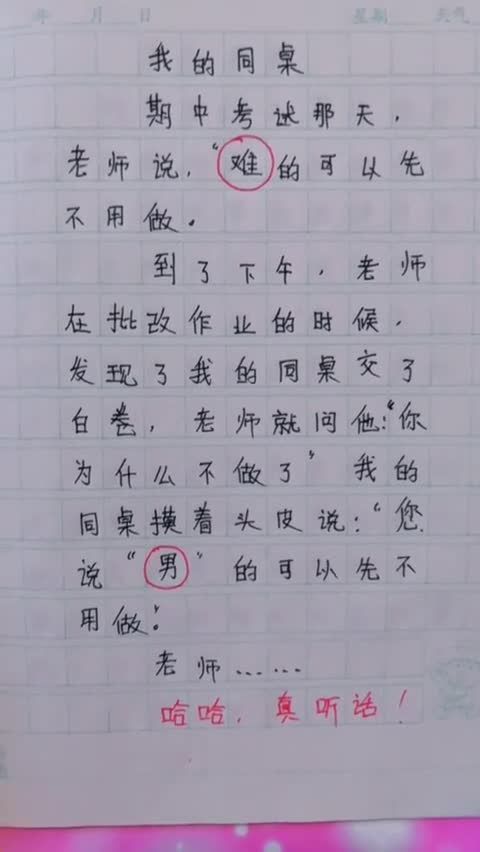 年 月 日 星期 天气
我的同桌
期中考试那天，
老师说，“难的可以先
不用做。
到了下午，老师
在批改作业的时候，
发现了我的同桌交了
白卷，老师就问他:“你
为什么不做了” 我的
同桌摸着头皮说:“您
说“男”的可以先不
用做!”
老师……
哈哈，真听话！